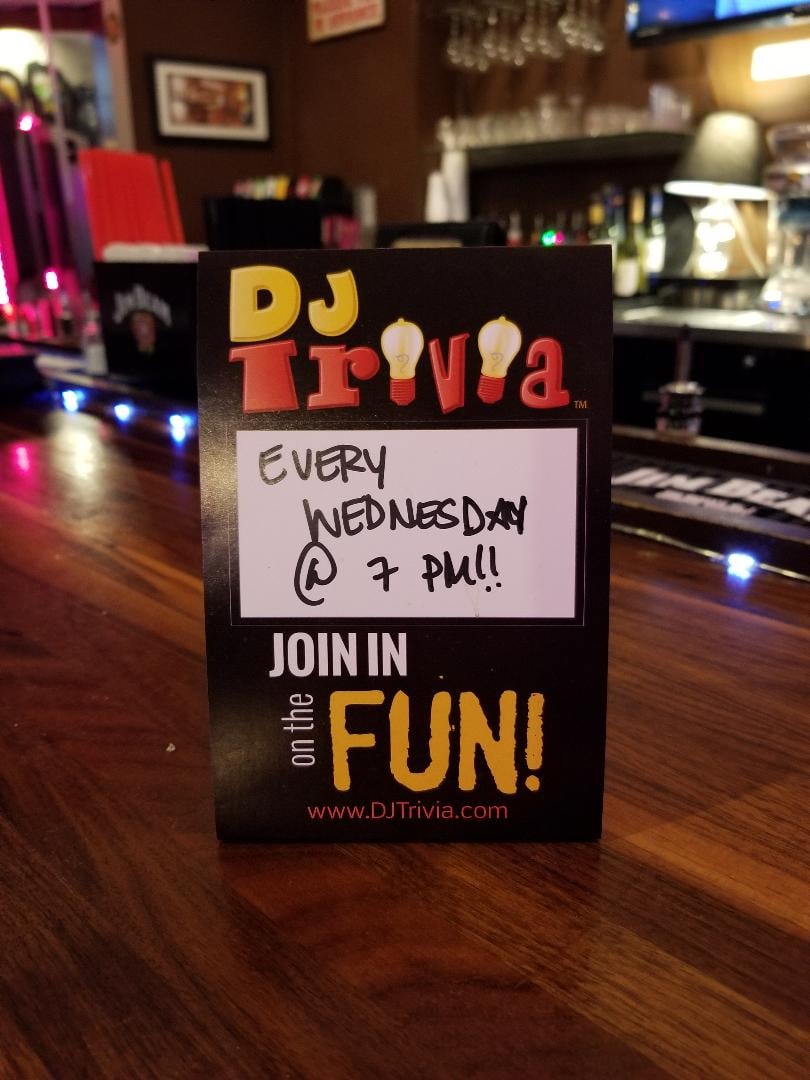 DJ
Trivia™
EVERY
WEDNESDAY
@ 7 PM!!
JOIN IN
on the
FUN!
www.DJTrivia.com
JIM BEAM
JIM BEA